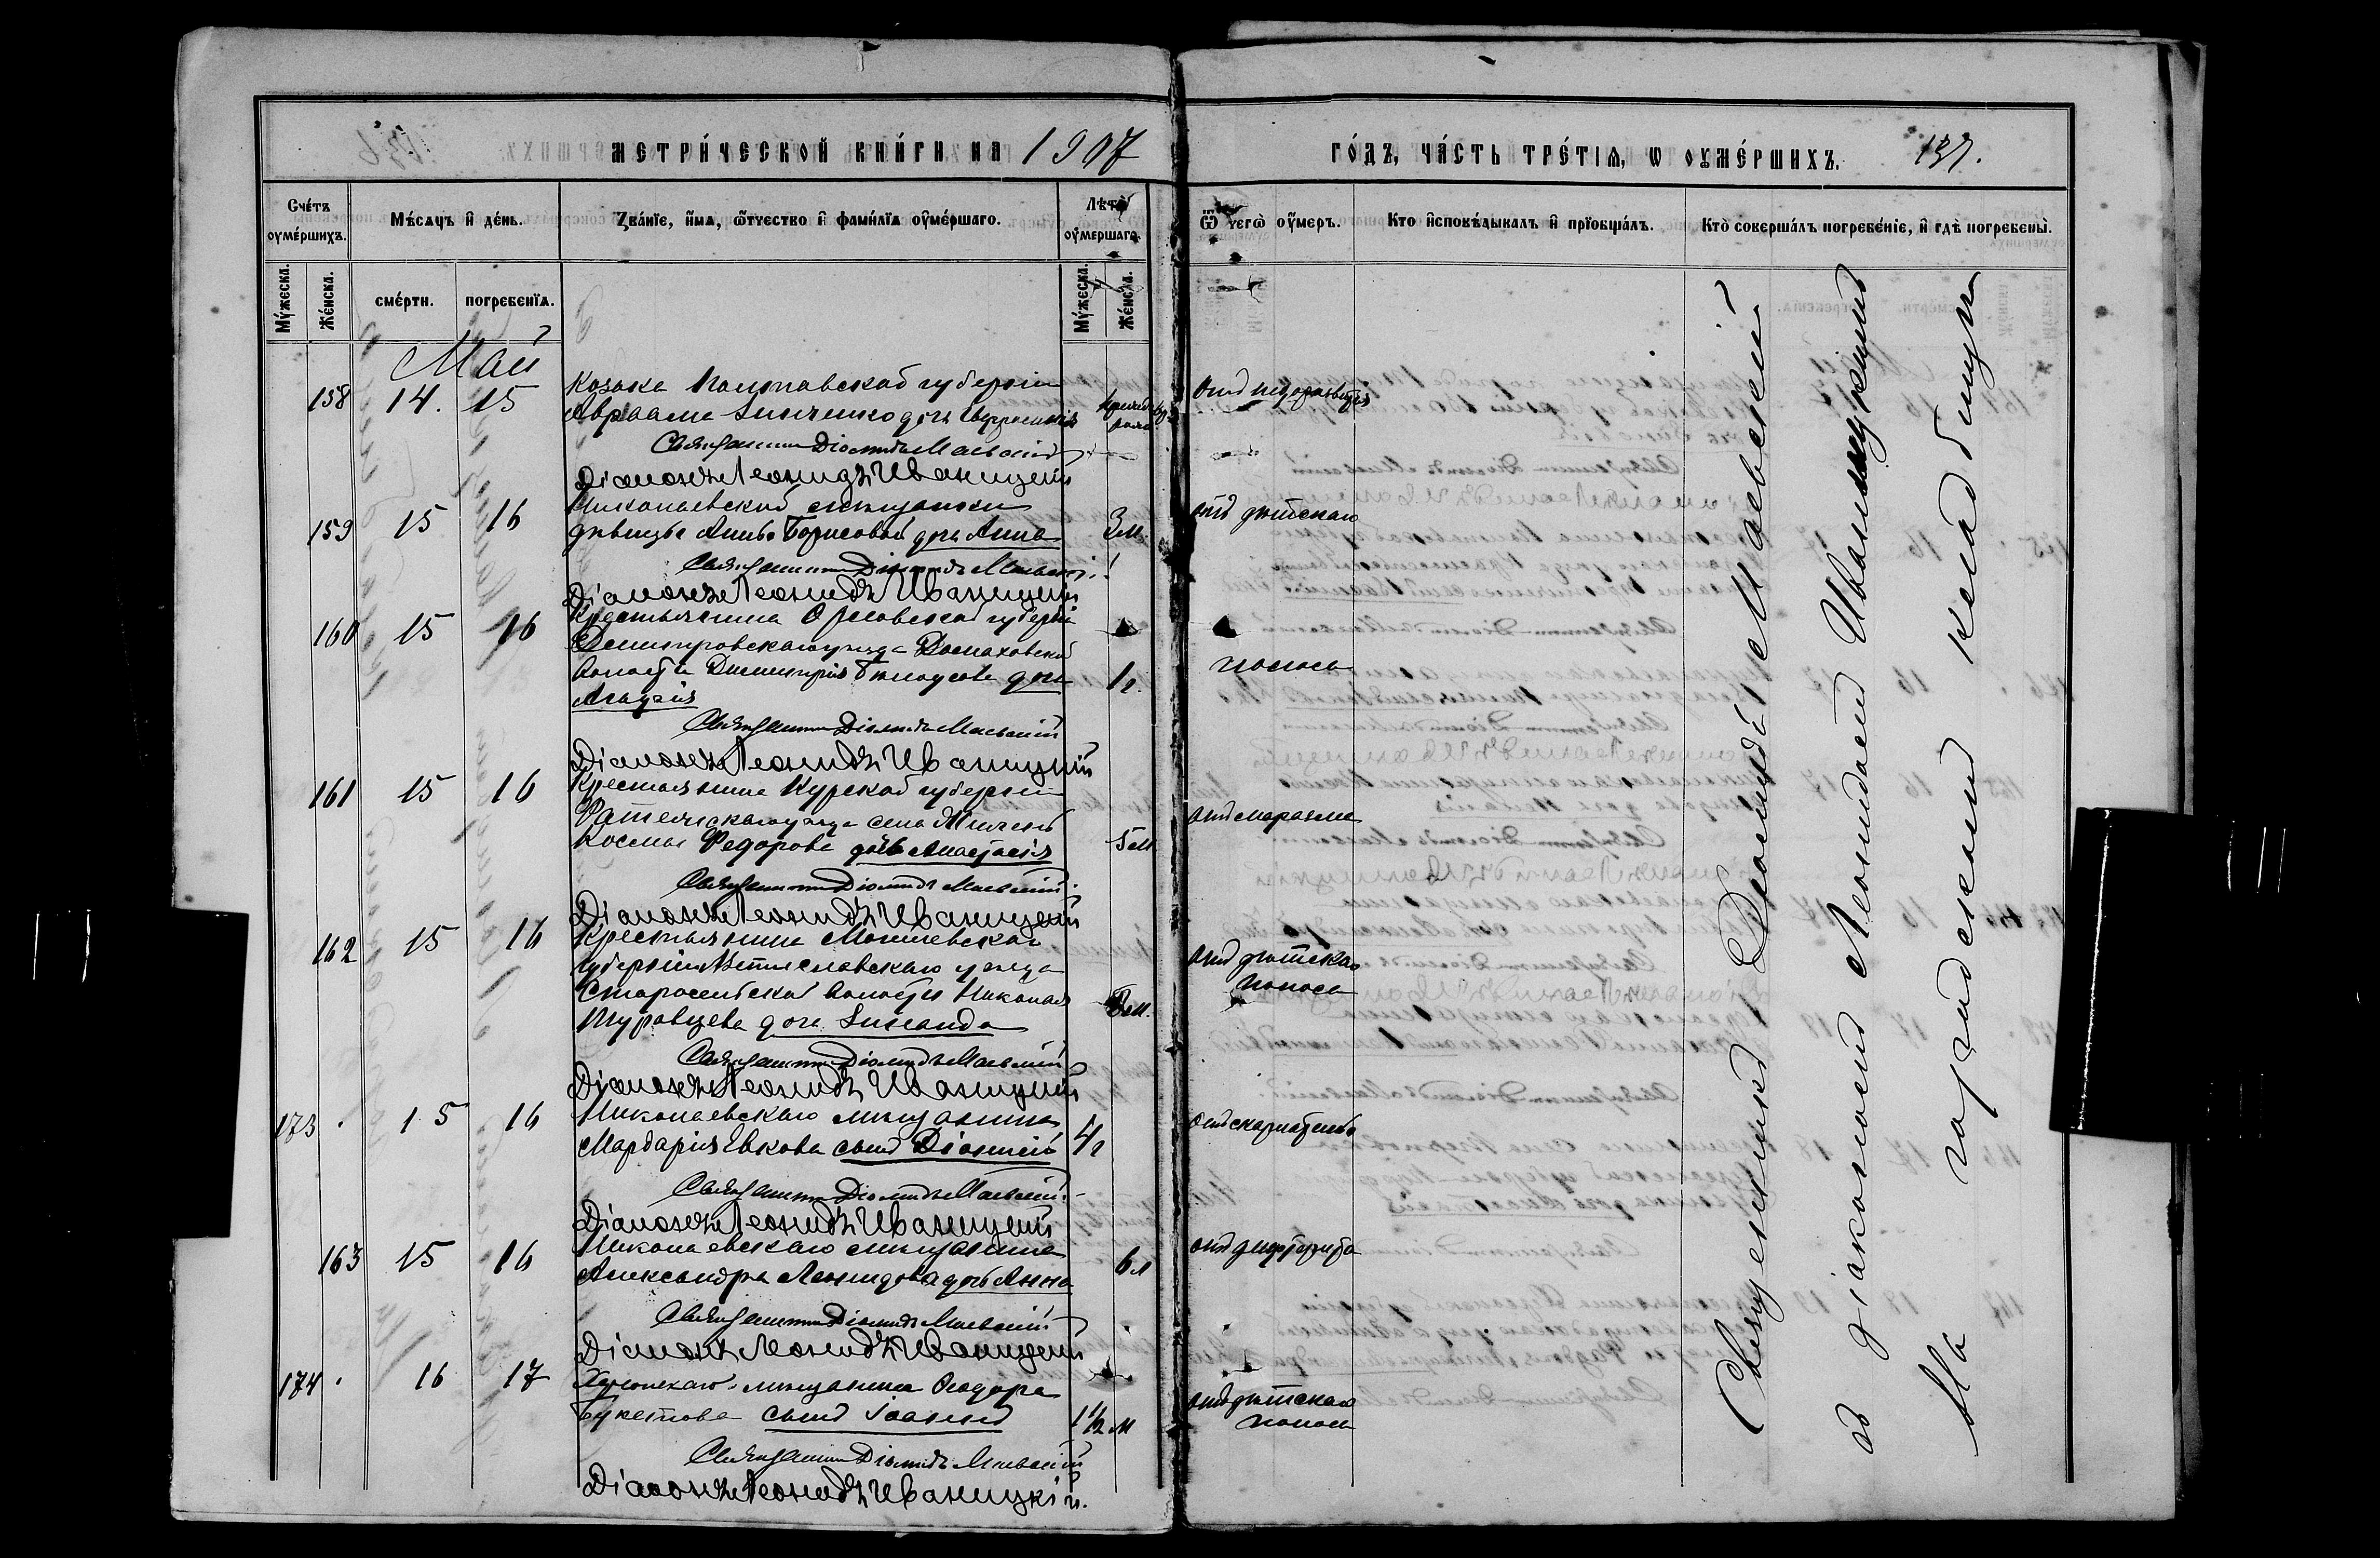 МЕТРИ́ЧЕСКОЙ КНИ́ГИ НА 1907
ГО́ДЪ, ЧА́СТЬ ТРЕ́ТІѦ, Ѡ ОУМЕ́РШИХЪ. 137.
Сче́тъ оумершихъ.
Мѣ́сѧцъ и҆ де́нь.
Зва́нїе, и҆́мѧ, ѻ҆́тчество и҆ фами́лїѧ оу҆ме́ршагѡ.
Лѣта оу҆мершагѡ.
Ѿ чегѡ̀ оу҆́меръ.
Кто и҆сповѣ́дывалъ и҆ прїобща́лъ.
Кто̀ соверша́лъ погребе́нїе, и҆ гдѣ̀ погребены̀.
Му́жеска.
Же́нска.
сме́рти.
погребенїѧ.
Му́жеска.
Же́нска.
Май
158 14. 15 Козака Полтавской губерніи
Авраама Зинченко дочь
отъ недоразвитія
Священникъ Діомидъ Маевскій
Діаконъ Леонидъ Иваницкій
159 15 16 Николаевской мѣщанки
дѣвицы Анны Борисовой дочь Анна 3 м.
отъ дѣтскаго
Священникъ Діомидъ Маевскій
Діаконъ Леонидъ Иваницкій
160 15 16 Крестьянина Орловской губерніи
Дмитровскаго уѣзда Домаховской
волости Димитрія Бѣлоусова дочь 1 г.
поноса
Священникъ Діомидъ Маевскій
Діаконъ Леонидъ Иваницкій
161 15 16 Крестьянина Курской губерніи
уѣзда села
Космы Федорова дочь Анастасія 5 м
отъ маразма
Священникъ Діомидъ Маевскій
Діаконъ Леонидъ Иваницкій
162 15 16 Крестьянина Могилевской
губерніи Мстиславскаго уѣзда
Старосельской волости Николая
дочь Зинаида м.
отъ дѣтскаго
поноса
Священникъ Діомидъ Маевскій
Діаконъ Леонидъ Иваницкій
173 15 16 Николаевскаго мѣщанина
Мардарія Евкова сынъ Діонисій 4 г
отъ скарлатины
Священникъ Діомидъ Маевскій
Діаконъ Леонидъ Иваницкій
163 15 16 Николаевскаго мѣщанина
Александра Леонидова дочь Анна 6 л
отъ дифтерита
Священникъ Діомидъ Маевскій
Діаконъ Леонидъ Иваницкій
174 16 17 Херсонскаго мѣщанина Ѳеодора
Букетова сынъ Іоаннъ 1½ м
отъ дѣтскаго
поноса
Священникъ Діомидъ Маевскій
Діаконъ Леонидъ Иваницкій.
Священникъ Діомидъ Маевскій
съ діакономъ Леонидомъ Иваницкимъ
На городскомъ кладбищѣ